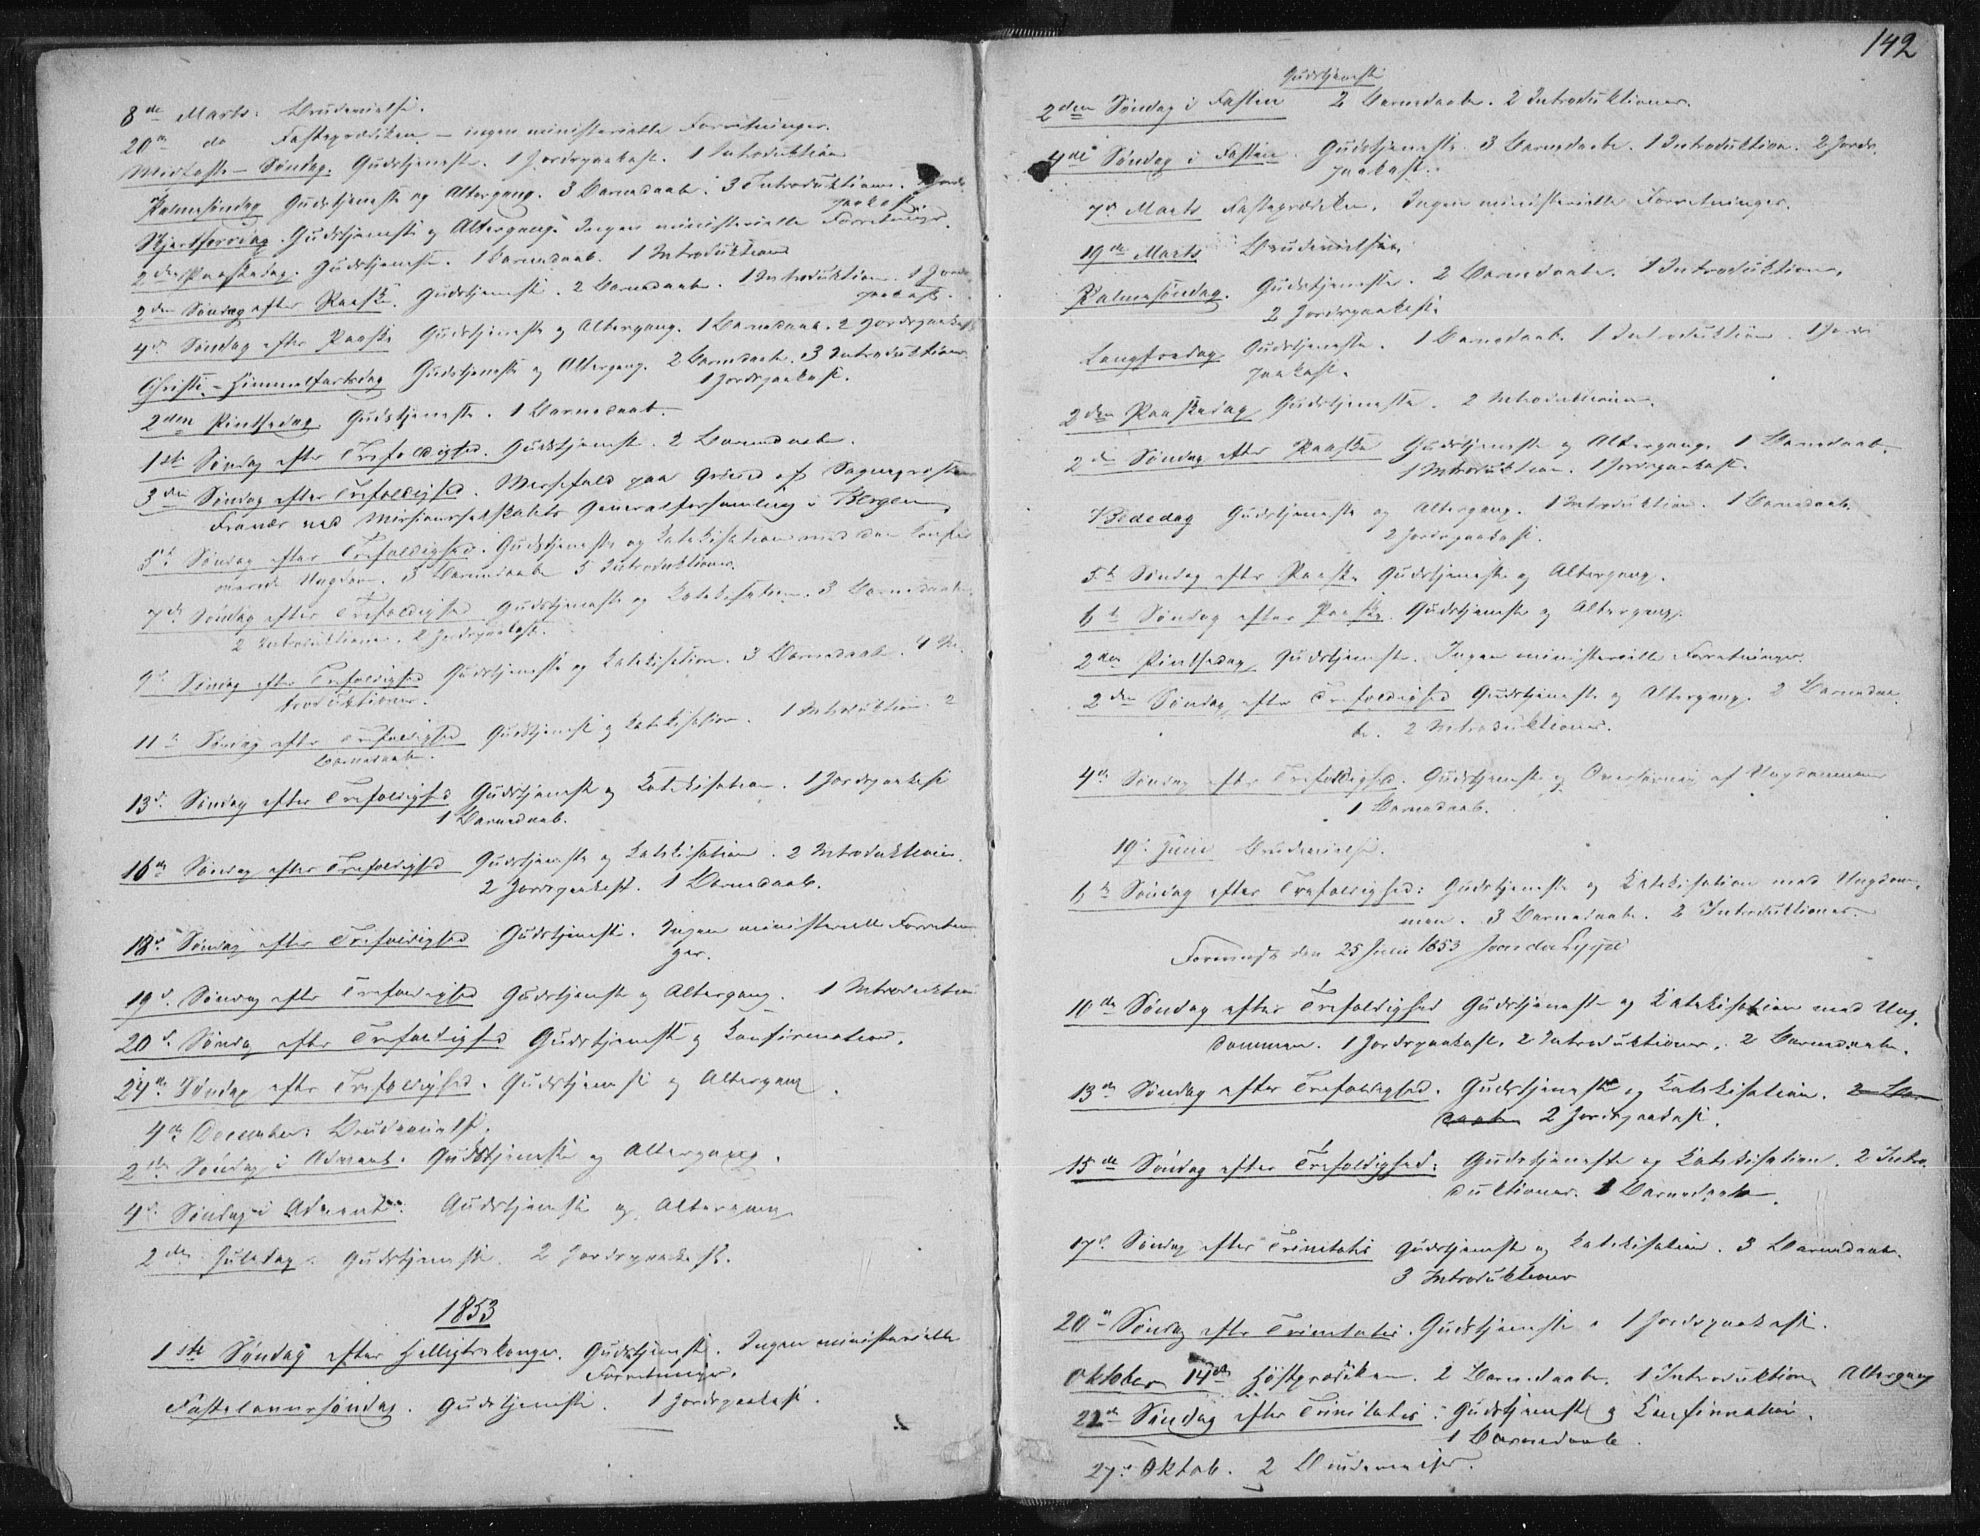 8de Marts. Brudevielse.
20de do Fasteprædiken – ingen ministerielle Forretninger.
Midfaste-Søndag. Gudstjeneste. 1 Jordspaakast. 1 Introduktion
Palmesøndag Gudstjeneste og Altergang. 3 Barnedaab. 3 Introduktioner. 1 Jords-
paakast.
Skjærthorsdag. Gudstjeneste og Altergang. Ingen ministerielle Forretninger.
2den Paaskedag. Gudstjeneste. 1 Barnedaab. 1 Introduktion
2den Søndag efter Paaske. Gudstjeneste. 2 Barnedaab. 1 Introduktion. 1 Jords-
paakast.
4de Søndag efter Paaske Gudstjeneste og Altergang. 1 Barnedaab. 2 Jordspaakast
Christi-Himmelfartsdag Gudstjeneste og Altergang. 2 Barnedaab. 3 Introduktioner
1 Jordspaakast.
2den Pintsedag. Gudstjeneste. 1 Barnedaab.
1ste Søndag efter Trefoldighed. Gudstjeneste. 2 Barnedaab.
3die Søndag efter Trefoldighed. Messefald paa Grund af Sognepræstens
Fravær ved Missionsselskabets Generalforsamling i Bergen
5te Søndag efter Trefoldighed. Gudstjeneste og Katekisation med den konfir-
merede Ungdom. 3 Barnedaab 5 Introduktioner.
7de Søndag efter Trefoldighed Gudstjeneste og Katekisation. 3 Barnedaab.
2 Introduktioner. 2 Jordspaakast.
9de Søndag efter Trefoldighed Gudstjeneste og Katekisation. 3 Barnedaab. 4 In-
troduktioner.
11te Søndag efter Trefoldighed Gudstjeneste og Katekisation. 1 Introduktion. 2
Barnedaab.
13de Søndag efter Trefoldighed Gudstjeneste og Katekisation. 1 Jordspaakast
1 Barnedaab.
16de Søndag efter Trefoldighed Gudstjeneste og Katekisation. 2 Introduktioner.
2 Jordspaakast. 1 Barnedaab.
18de Søndag efter Trefoldighed Gudstjeneste. Ingen ministerielle Forretnin-
ger.
19de Søndag efter Trefoldighed Gudstjeneste og Altergang. 1 Introduktion
20de Søndag efter Trefoldighed Gudstjeneste og Konfirmation.
24de Søndag efter Trefoldighed. Gudstjeneste og Altergang.
4de December: Brudevielse.
2den Søndag i Advent. Gudstjeneste og Altergang.
4de Søndag i Advent: Gudstjeneste og Altergang
2den Juledag. Gudstjeneste. 2 Jordspaakast.
1853
1ste Søndag efter Helligtrekonger. Gudstjeneste. Ingen ministerielle
Forretninger.
Fastelavnssøndag. Gudstjeneste. 1 Jordspaakast.
142
Gudstjeneste
2den Søndag i Fasten 2 Barnedaab. 2 Introduktioner.
4de Søndag i Fasten. Gudstjeneste. 3 Barnedaab. 1 Introduktion. 2 Jords-
paakast.
7de Marts Fasteprædiken. Ingen ministerielle Forretninger.
19de Marts Brudevielse.
Palmesøndag. Gudstjeneste. 2 Barnedaab. 1 Introduktion.
2 Jordspaakast.
Langfredag Gudstjeneste. 1 Barnedaab. 1 Introduktion. 1 Jords-
paakast.
2den Paaskedag Gudstjeneste. 2 Introduktioner.
2den Søndag efter Paaske Gudstjeneste og Altergang. 1 Barnedaab.
1 Introduktion. 1 Jordspaakast.
Bededag Gudstjeneste og Altergang. 1 Introduktion. 1 Barnedaab.
2 Jordspaakast.
5te Søndag efter Paaske Gudstjeneste og Altergang.
6te Søndag efter Paaske. Gudstjeneste og Altergang.
2den Pintsedag Gudstjeneste. Ingen ministerielle Forretninger.
2den Søndag efter Trefoldighed Gudstjeneste og Altergang. 2 Barnedaa-
be. 2 Introduktioner.
4de Søndag efter Trefoldighed. Gudstjeneste og Overhøring af Ungdommen
1 Barnedaab.
19de Juni Brudevielse.
6te Søndag efter Trefoldighed: Gudstjeneste og Katekisation med Ungdom-
men. 3 Barnedaab. 2 Introduktioner.
den 25 1853
10de Søndag efter Trefoldighed Gudstjeneste og Katekisation med Ung-
dommen. 1 Jordspaakast. 2 Introduktioner. 2 Barnedaab.
13de Søndag efter Trefoldighed. Gudstjeneste og Katekisation. 2 Bar-
daab 2 Jordspaakast.
15de Søndag efter Trefoldighed: Gudstjeneste og Katekisation. 2 Intro-
duktioner. 1 Barnedaab.
17de Søndag efter Trinitatis Gudstjeneste og Katekisation. 3 Barnedaab.
3 Introduktioner
20de Søndag efter Trinitatis. Gudstjeneste. 1 Jordspaakast.
Oktober 14de Høstprædiken. 2 Barnedaab. 1 Introduktion, Altergang
22de Søndag efter Trinitatis. Gudstjeneste og Konfirmation.
1 Barnedaab.
27de Oktob. 2 Brudevielser.